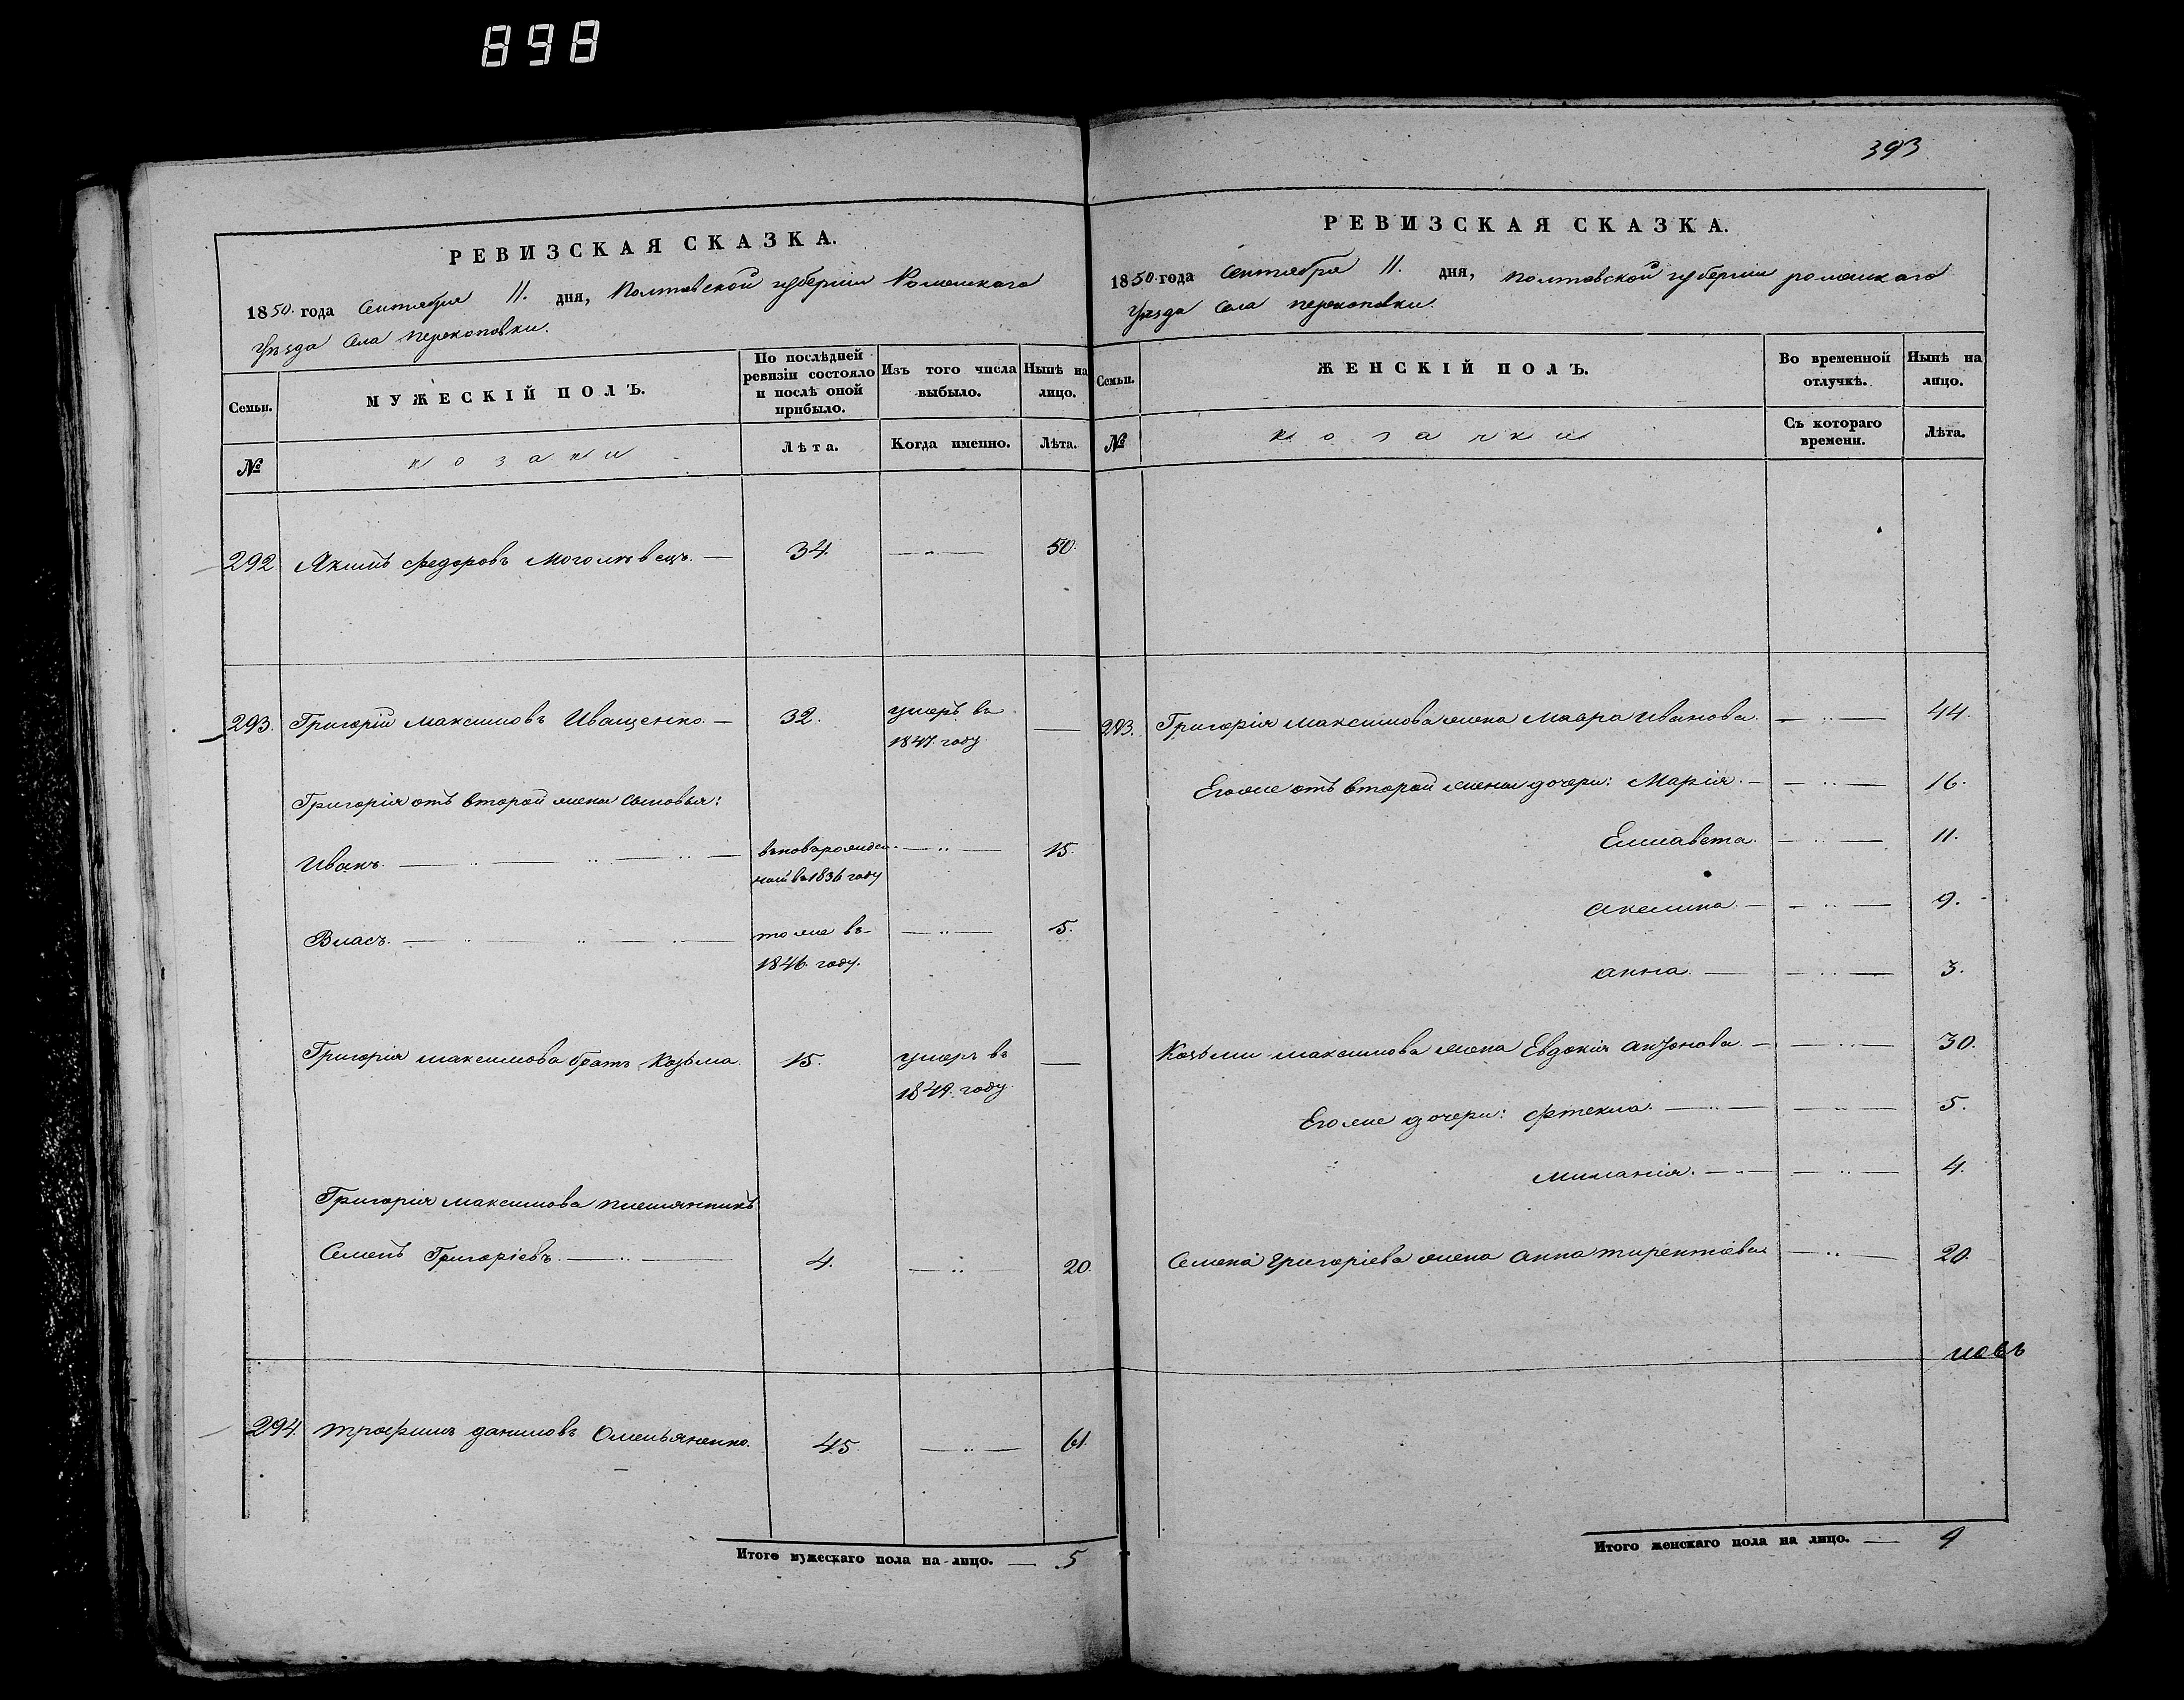 898
РЕВИЗСКАЯ СКАЗКА.
1850. года Сентября 11. дня, Полтавской губерніи Роменскаго
Уѣзда Села Перекоповки.
Семьи.
МУЖЕСКІЙ ПОЛЪ.
По послѣдней ревизіи состояло и послѣ оной прибыло.
Изъ того числа выбыло.
Нынѣ на лицо.
№
козаки
Лѣта.
Когда именно.
Лѣта.
292 Якимъ Федоровъ — 34. — 50.
293. Григорій Максимовъ Иващенко — 32. умеръ въ —
1847. году
Григорія отъ второй жены сыновья:
Иванъ. — вновь рожден- — 15.
ной въ 1836 году
Власъ. — тоже въ — 5.
1846. году.
Григорія Максимова братъ Козьма. 15. умеръ въ —
1849. году.
Григорія Максимова племянникъ
Семенъ Григоріевъ. — 4. — 20.
294. Трофимъ Даниловъ Омельяненко. 45 — 61.
Итого мужескаго пола на-лицо. — 5
393
РЕВИЗСКАЯ СКАЗКА.
1850. года Сентября 11. дня, Полтавской губерніи роменскаго
Уѣзда Села Перекоповки.
Семьи.
ЖЕНСКІЙ ПОЛЪ.
Во временной отлучкѣ.
Нынѣ на лицо.
№
козачки
Съ котораго времени.
Лѣта.
293. Григорія Максимова жена Мавра Иванова. — 44.
Егоже отъ второй жены дочери: Марія. — 16.
Елисавета. — 11.
Акелина. — 9.
Анна. — 3.
Козьми Максимова жена Евдокія Антонова. — 30.
Егоже дочери: Фтекла. — 5.
Миланія. — 4.
Семена Григоріева жена Анна Тирентіева — 20.
Итого женскаго пола на лицо. — 9